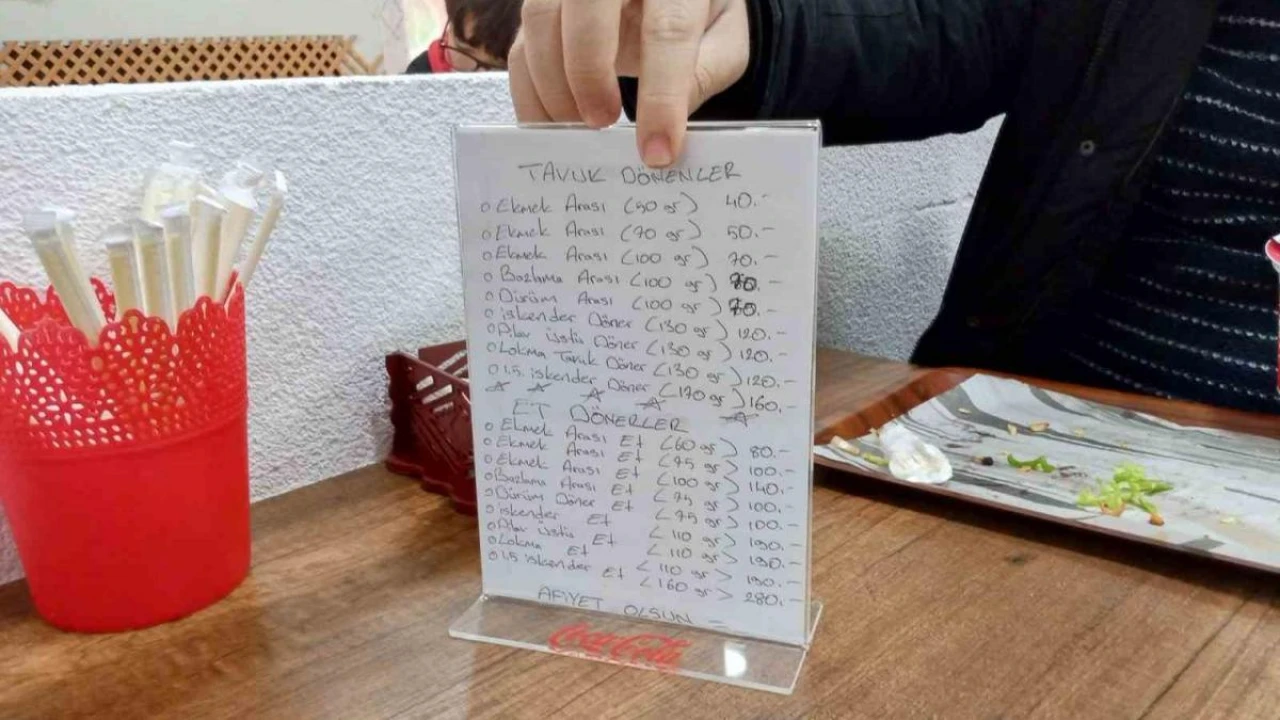 TAVUK DÖNENLER
o Ekmek Arası (50 gr) 40.-
o Ekmek Arası (70 gr) 50.-
o Ekmek Arası (100 gr) 70.-
o Bazlama Arası (100 gr) 80.-
o Dürüm Arası (100 gr) 70.-
o iskender Döner (130 gr) 120.-
o Pilav üstü Döner (130 gr) 120.-
o Lokma Tavuk Döner (130 gr) 120.-
o 1.5. iskender Döner (170 gr) 160.-
ET DÖNERLER
o Ekmek Arası Et (60 gr) 80.-
o Ekmek Arası Et (75 gr) 100.-
o Ekmek Arası Et (100 gr) 140.-
o Bazlama Arası Et (75 gr) 100.-
o Dürüm Döner Et (75 gr) 100.-
o iskender Et (110 gr) 190.-
o Pilav üstü Et (110 gr) 190.-
o Lokma Et (110 gr) 190.-
o 1.5 iskender Et (160 gr) 280.-
AFİYET OLSUN
Coca-Cola